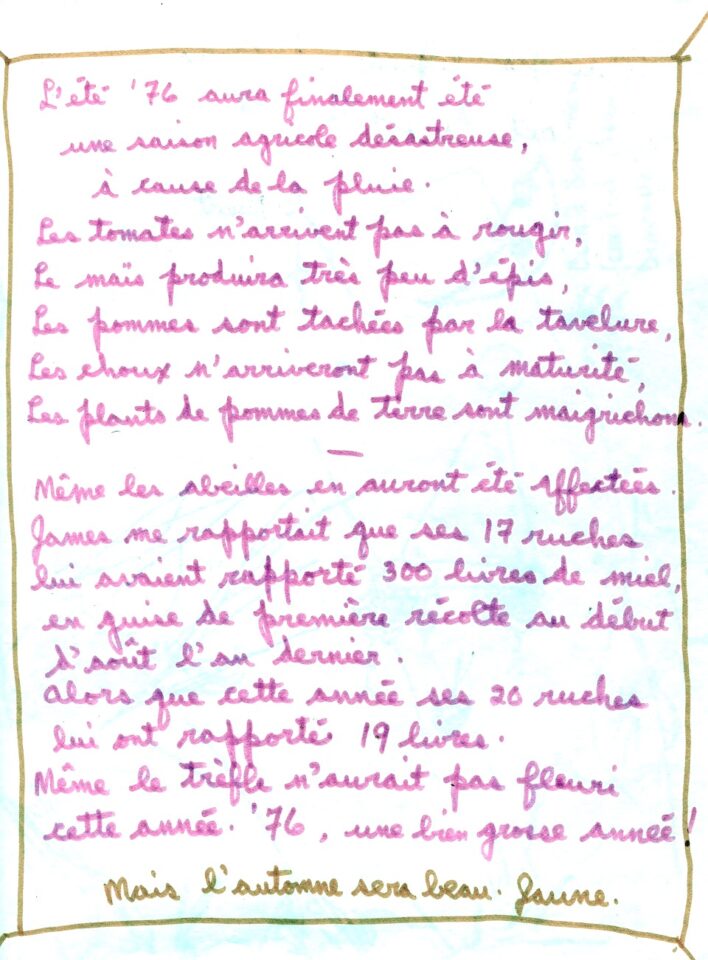 L'été '76 aura finalement été
une saison agricole désastreuse,
à cause de la pluie.
Les tomates n'arrivent pas à rougir,
Le maïs produira très peu d'épis,
Les pommes sont tachées par la tavelure,
Les choux n'arriveront pas à maturité,
Les plants de pommes de terre sont maigrichons.
—
Même les abeilles en auront été affectées.
James me rapportait que ses 17 ruches
lui avaient rapporté 300 livres de miel,
en guise de première récolte au début
d'août l'an dernier.
Alors que cette année ses 20 ruches
lui ont rapporté 19 livres.
Même le trèfle n'aurait pas fleuri
cette année. '76, une bien grosse année!
Mais l'automne sera beau. Jaune.